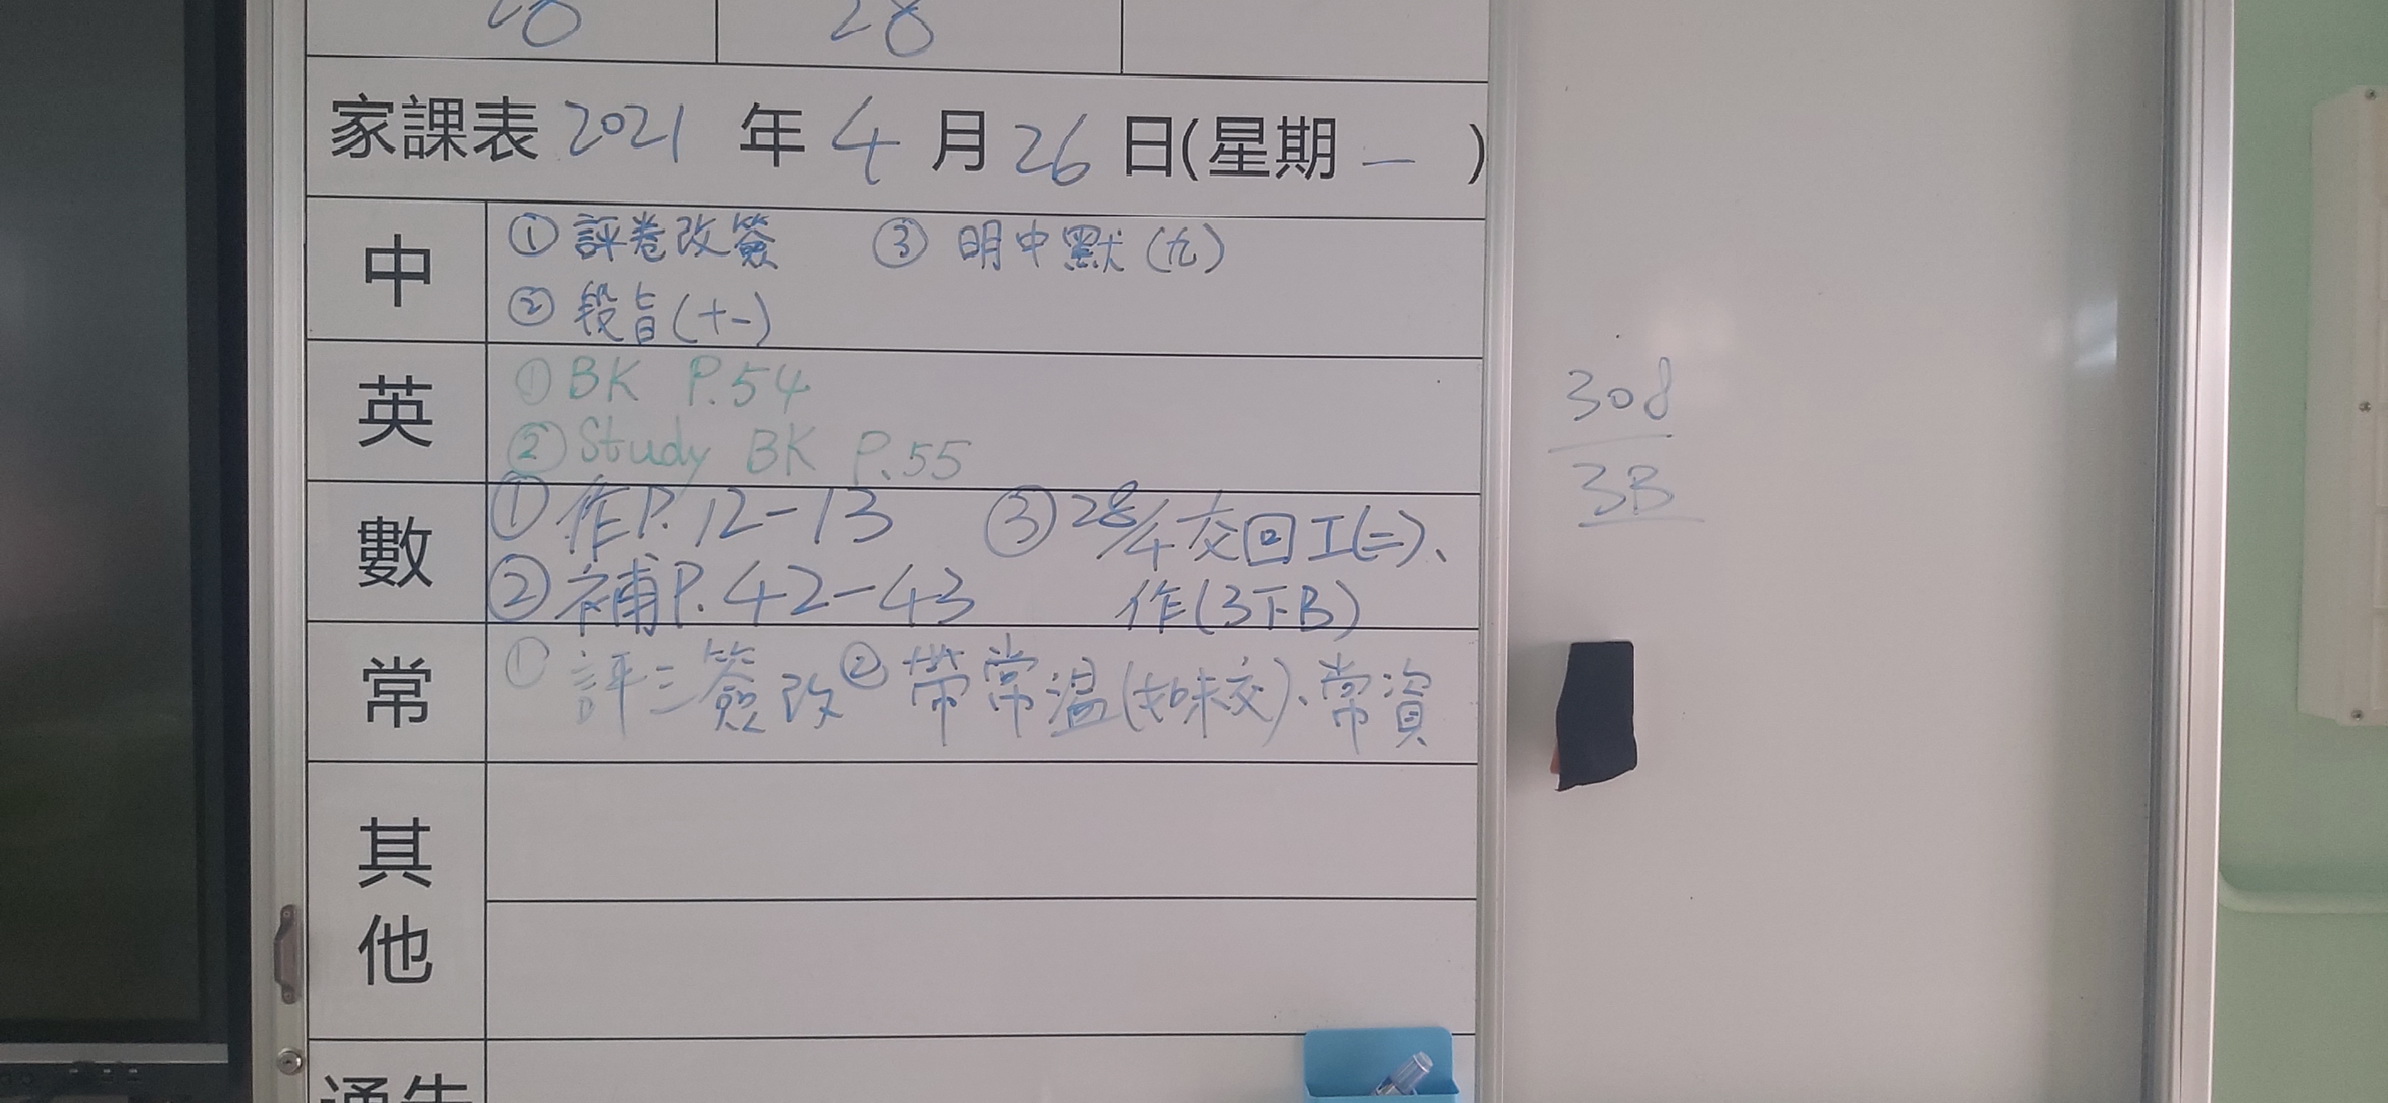 28 28
家課表 2021 年 4 月 26 日(星期 一 )
中
① 評卷改簽 ③ 明中默(九)
② 段旨(十一)
英
① BK P.54
② Study BK P.55
數
① 作P.12-13 ③ 28/4交回工(二)、
② 補P.42-43 作(3下B)
常
① 評三簽改 ② 帶常溫(如未交)、常資
其
他
通告
308
3B